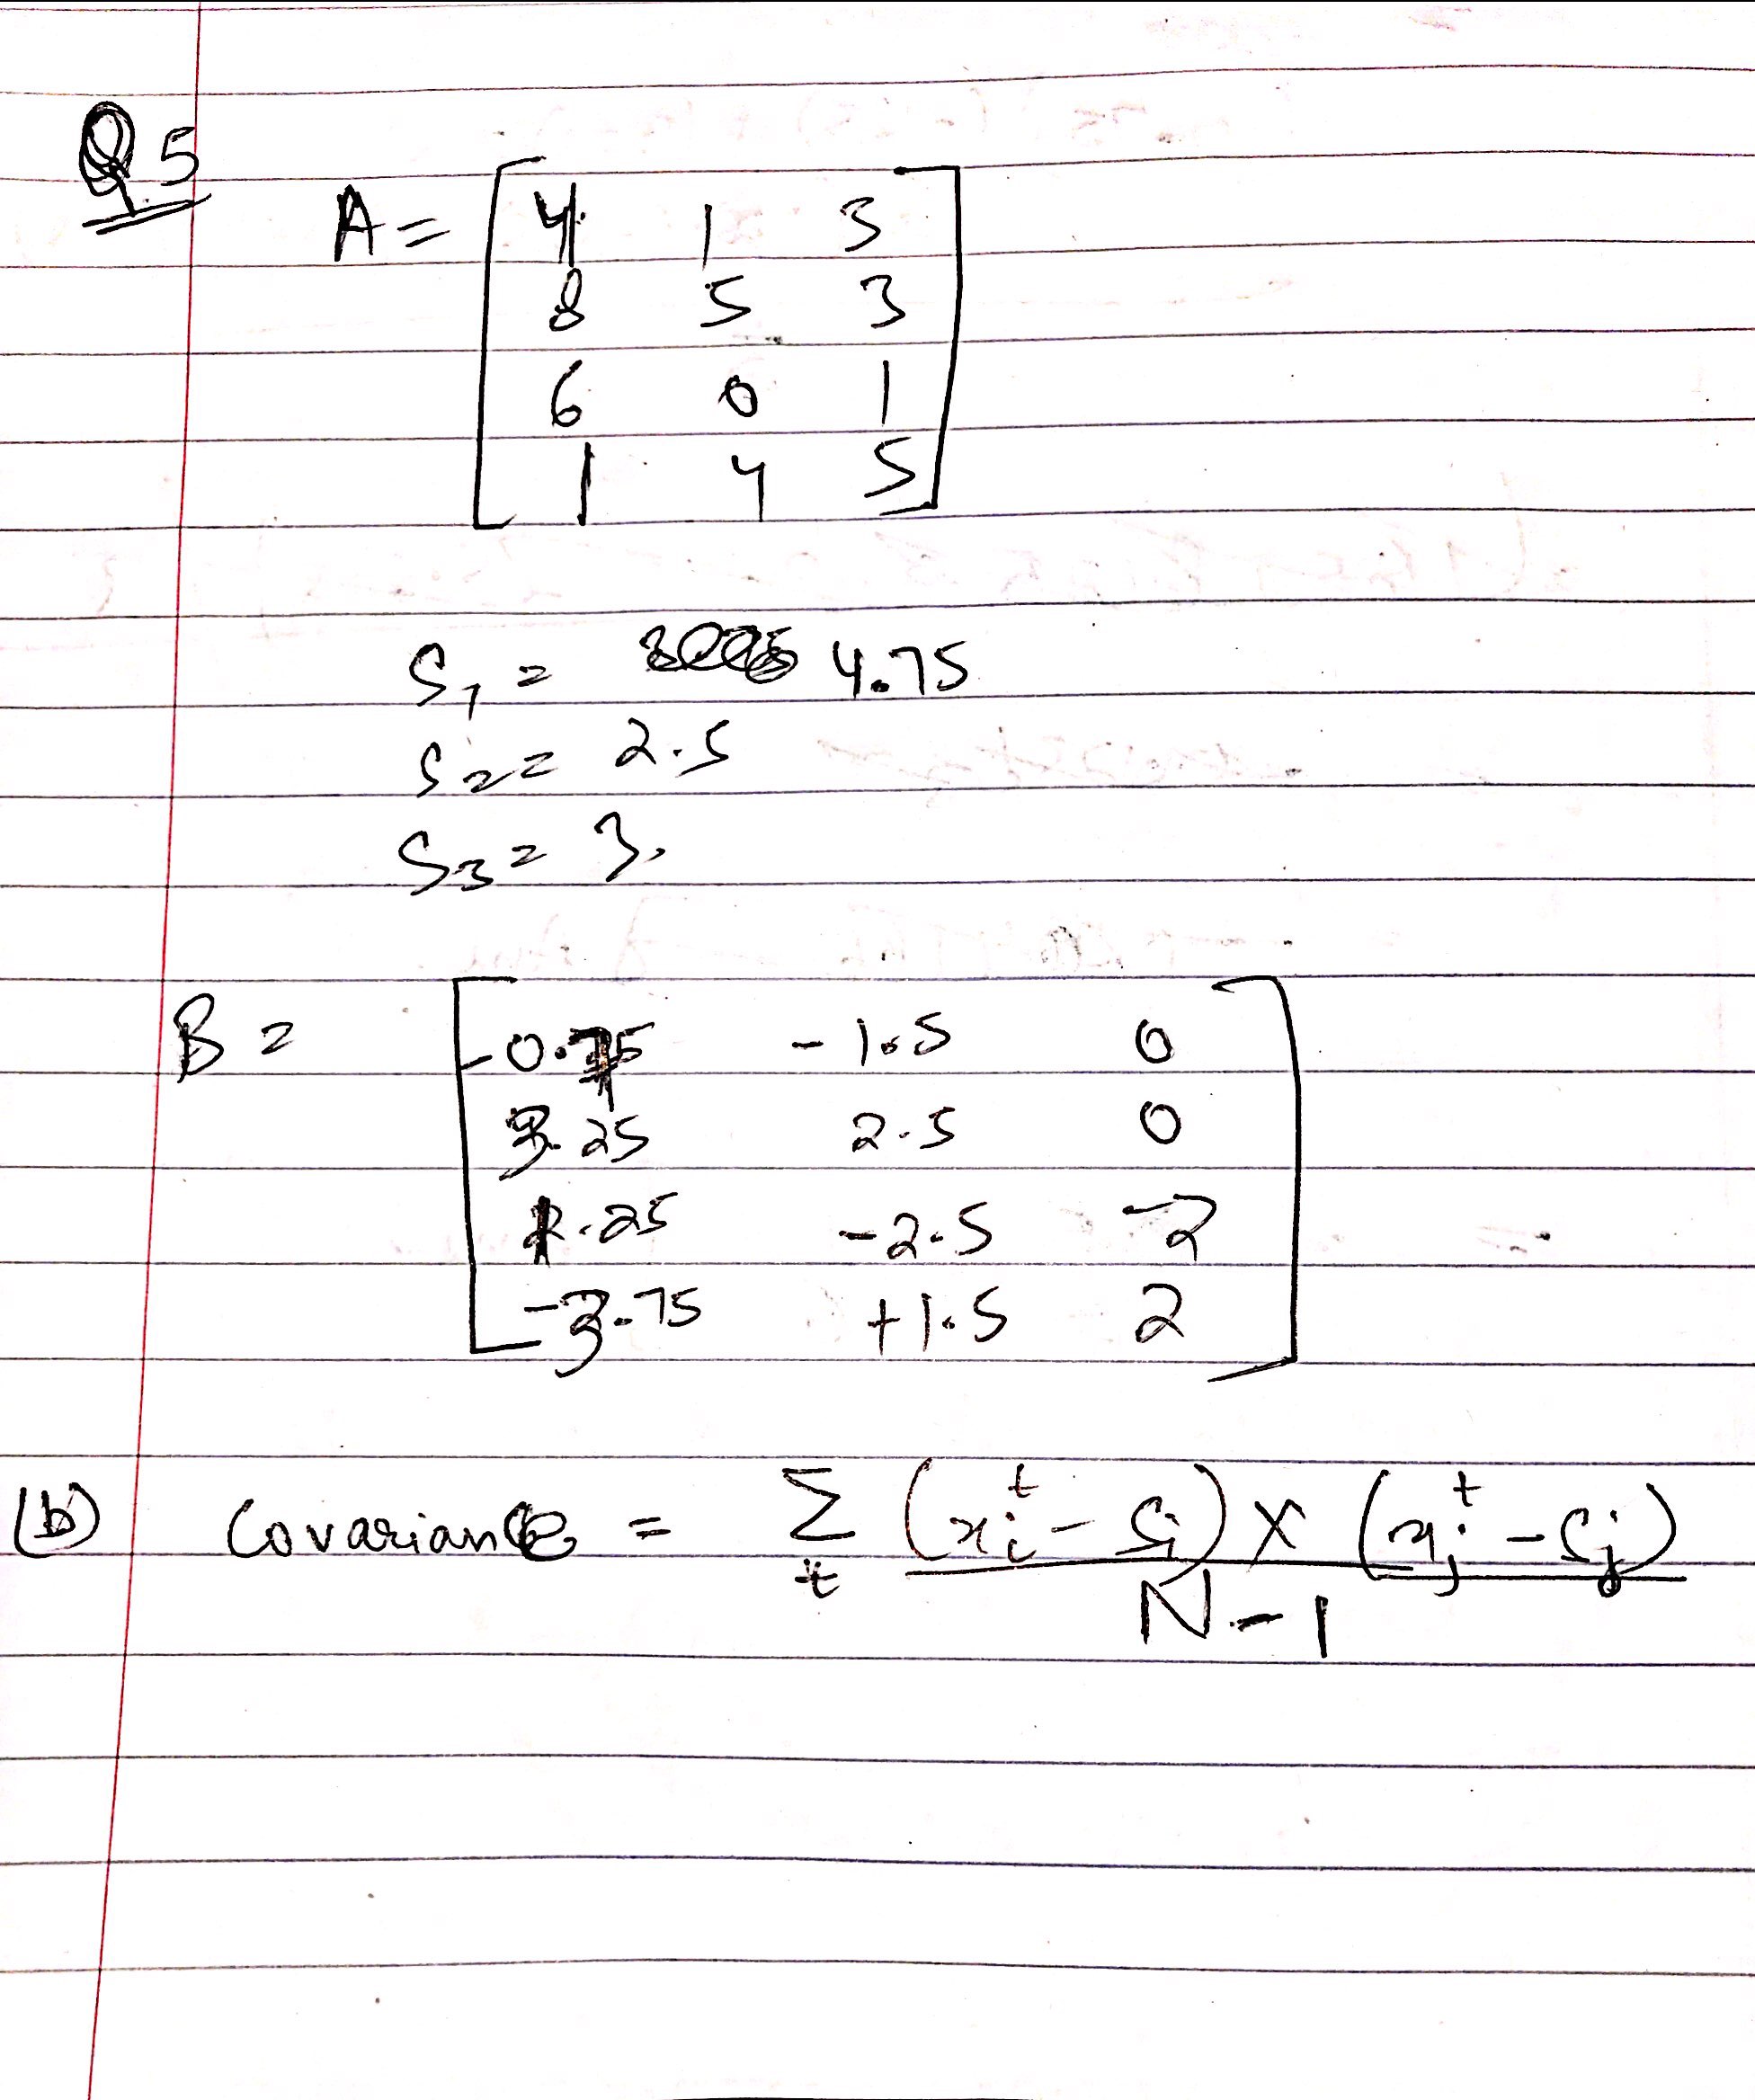 Q5
A = [ 4 1 3
8 5 3
6 0 1
1 4 5 ]
S₁ = 4.75
S₂ = 2.5
S₃ = 3.
B = [ -0.75 -1.5 0
3.25 2.5 0
1.25 -2.5 -2
-3.75 +1.5 2 ]
(b) Covariance = Σ_t (x_i^t - S_i) × (x_j^t - S_j)
N - 1